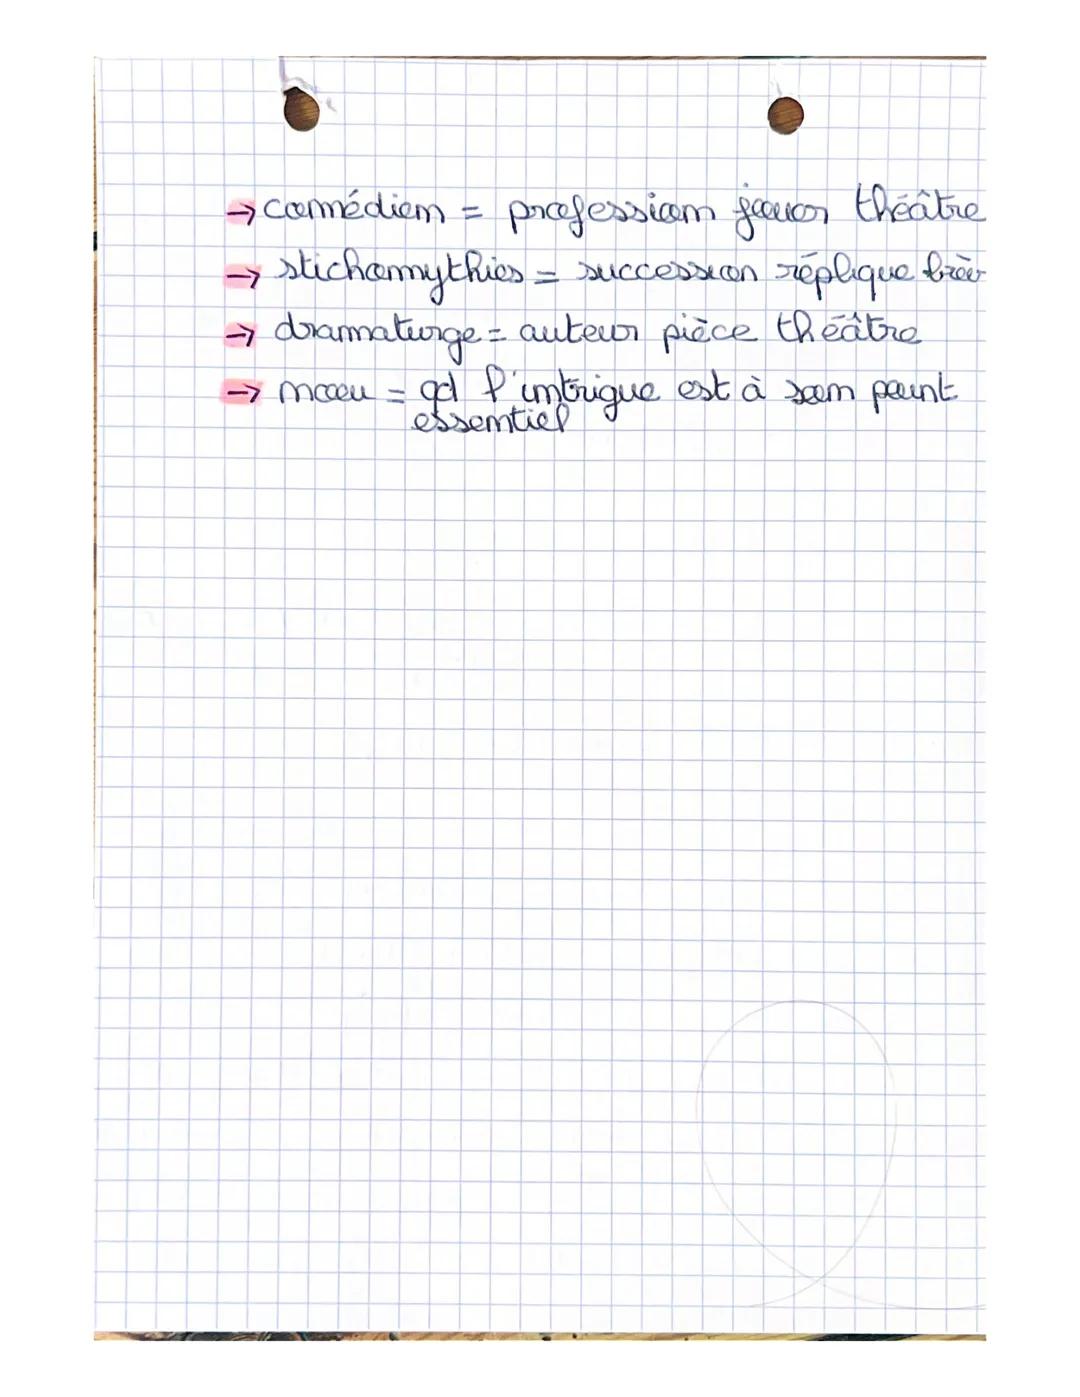 → comédien = profession jouer théâtre
→ stichomythies = succession réplique brèv
→ dramaturge = auteur pièce théâtre
→ noeu = qd l'intrigue est à son point
essentiel